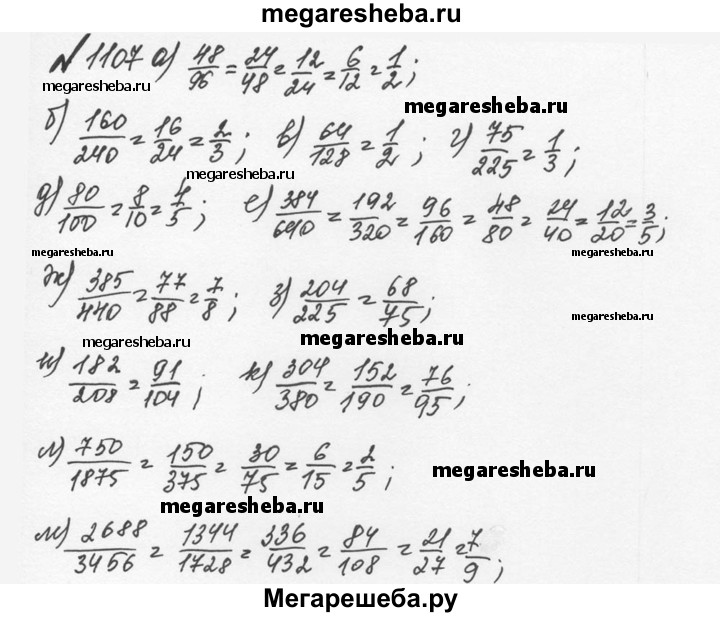 megaresheba.ru
№1107 а) 48/96 = 24/48 = 12/24 = 6/12 = 1/2;
megaresheba.ru
megaresheba.ru
б) 160/240 = 16/24 = 2/3; в) 64/128 = 1/2; г) 75/225 = 1/3;
megaresheba.ru
д) 80/100 = 8/10 = 4/5; е) 384/640 = 192/320 = 96/160 = 48/80 = 24/40 = 12/20 = 3/5;
megaresheba.ru
megaresheba.ru
ж) 385/440 = 77/88 = 7/8; з) 204/225 = 68/75;
megaresheba.ru
megaresheba.ru
megaresheba.ru
и) 182/208 = 91/104; к) 304/380 = 152/190 = 76/95;
л) 750/1875 = 150/375 = 30/75 = 6/15 = 2/5;
megaresheba.ru
megaresheba.ru
м) 2688/3456 = 1344/1728 = 336/432 = 84/108 = 21/27 = 7/9;
Мегарешеба.ру